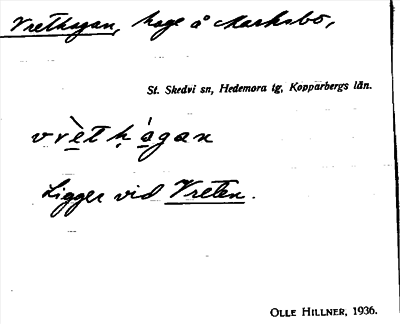 Vrethagan, hage å Marknbo,
St. Skedvi sn, Hedemora tg, Kopparbergs län.
vrèt hágan
Ligger vid Vreten.
OLLE HILLNER, 1936.